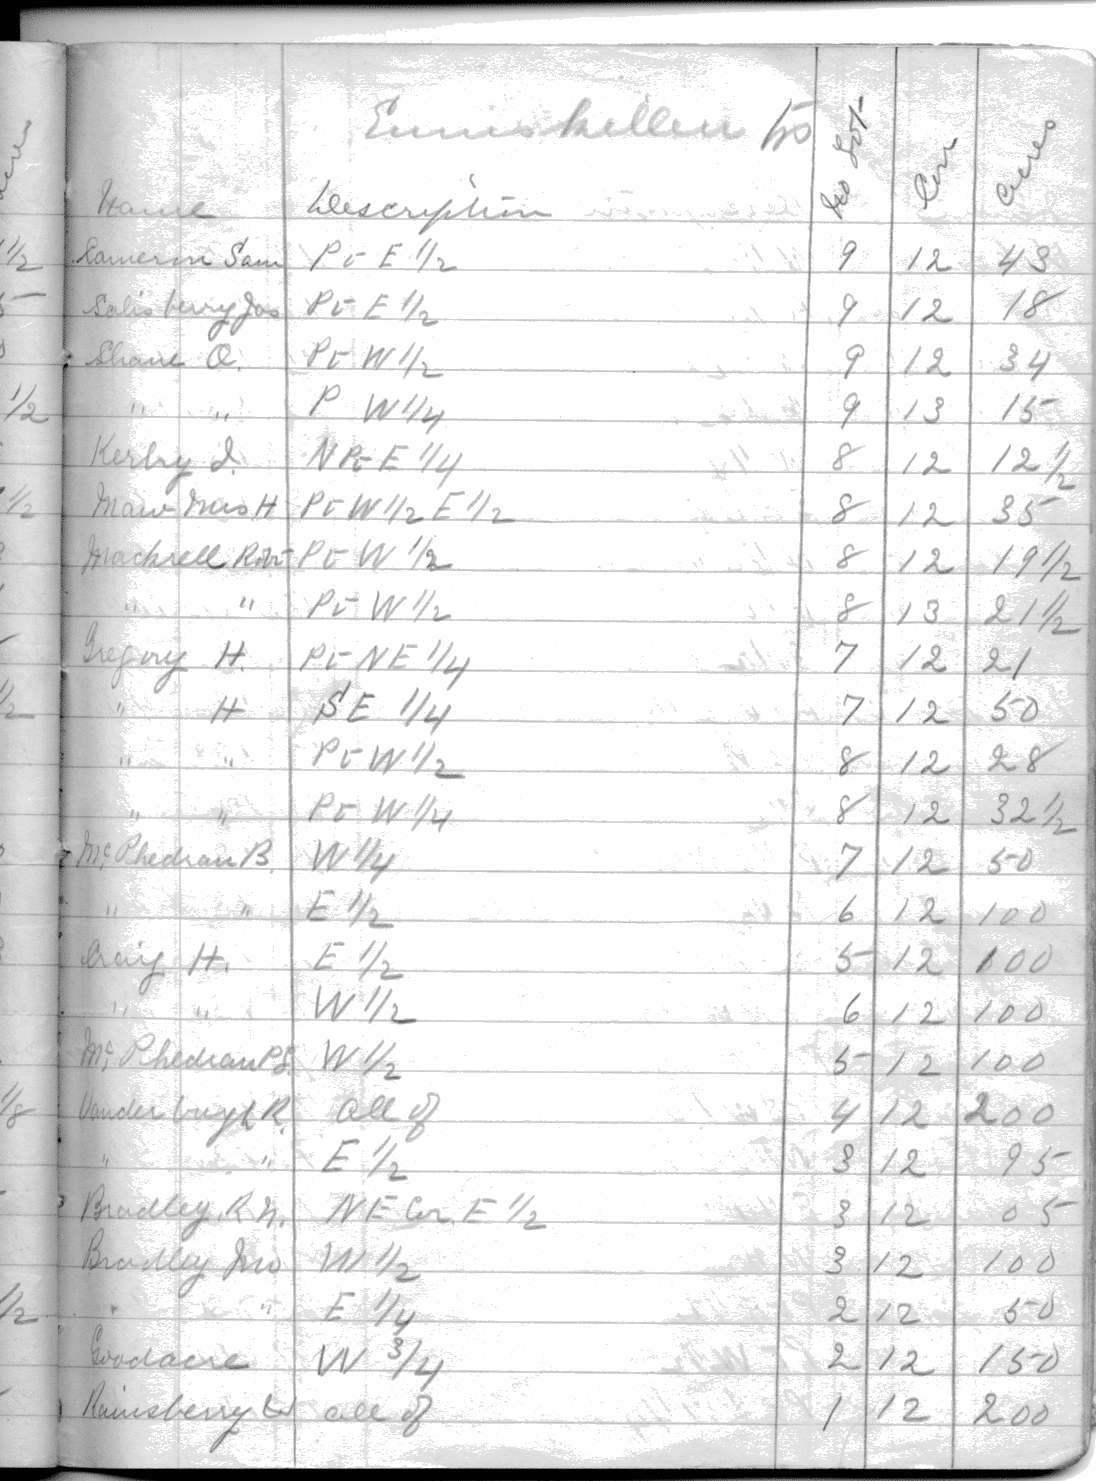 Enniskillen
Name Description No Lot Con Acres
Cameron Sam Pt E 1/2 9 12 43
Salisbury Jas Pt E 1/2 9 12 18
Shane O. Pt W 1/2 9 12 34
" " P W 1/4 9 13 15
Kerby J. N Pt E 1/4 8 12 12 1/2
Maw Mrs H Pt W 1/2 E 1/2 8 12 35
Mackrell Robt Pt W 1/2 8 12 19 1/2
" " Pt W 1/2 8 13 21 1/2
Gregory H. Pt NE 1/4 7 12 21
" H SE 1/4 7 12 50
" " Pt W 1/2 8 12 28
" " Pt W 1/4 8 12 32 1/2
McPhedran B. W 1/4 7 12 50
" " E 1/2 6 12 100
Craig H. E 1/2 5 12 100
" " W 1/2 6 12 100
McPhedran W 1/2 5 12 100
Vanderburgh R. all of 4 12 200
" " E 1/2 3 12 95
Bradley R. N. NE Cor. E 1/2 3 12 05
Bradley Jno W 1/2 3 12 100
" " E 1/4 2 12 50
Goodacre W 3/4 2 12 150
Rainsberry all of 1 12 200